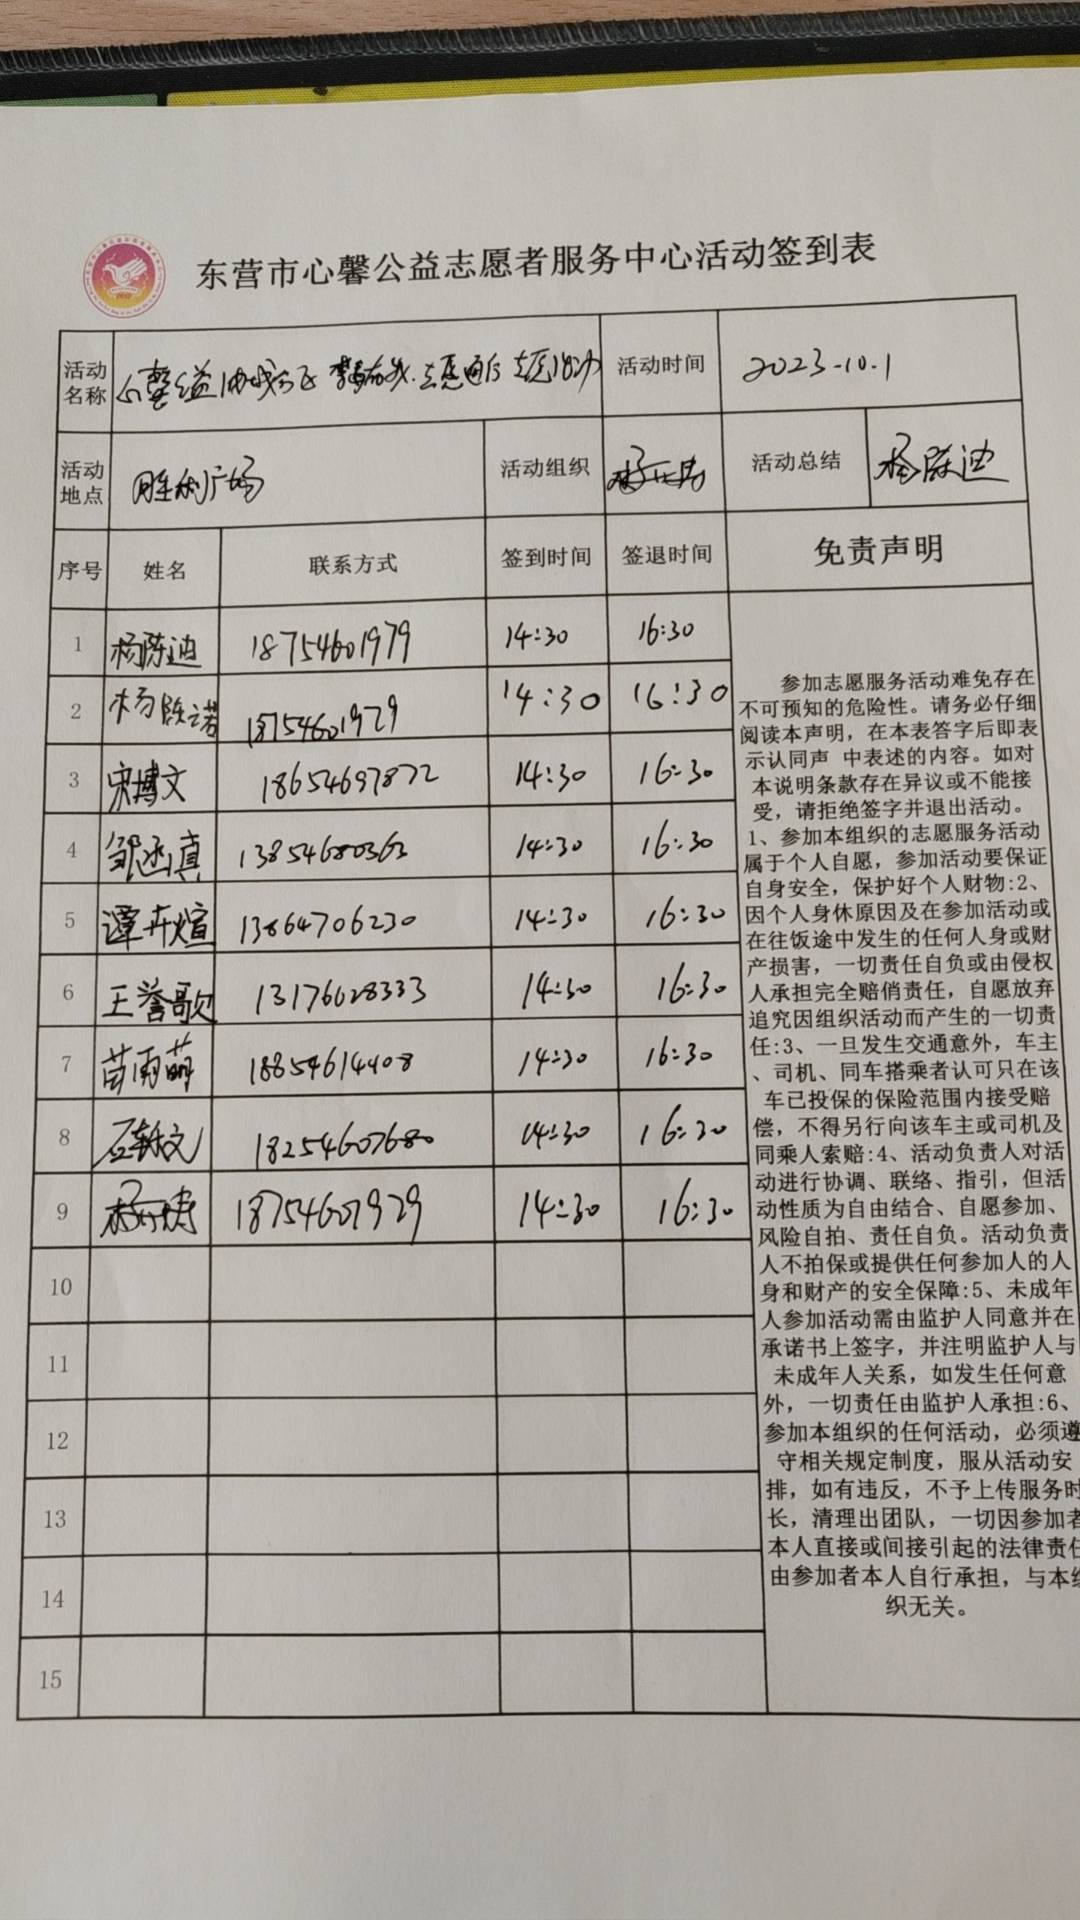 东营市心馨公益志愿者服务中心活动签到表
活动名称 心馨公益 志愿 活动时间 2023.10.1
活动地点 胜利广场 活动组织 活动总结 杨陈迪
序号 姓名 联系方式 签到时间 签退时间 免责声明
1 杨陈迪 18754601979 14:30 16:30
2 杨陈诺 18754601929 14:30 16:30
3 宋博文 18654697872 14:30 16:30
4 邹函真 13854680363 14:30 16:30
5 谭卉煊 13864706230 14:30 16:30
6 王誉歌 13176028333 14:30 16:30
7 苗雨萌 18854614408 14:30 16:30
8 石轶文 18254607680 14:30 16:30
9 18754601929 14:30 16:30
10
11
12
13
14
15
参加志愿服务活动难免存在
不可预知的危险性。请务必仔细
阅读本声明，在本表答字后即表
示认同声 中表述的内容。如对
本说明条款存在异议或不能接
受，请拒绝签字并退出活动。
1、参加本组织的志愿服务活动
属于个人自愿，参加活动要保证
自身安全，保护好个人财物:2、
因个人身休原因及在参加活动或
在往饭途中发生的任何人身或财
产损害，一切责任自负或由侵权
人承担完全赔俏责任，自愿放弃
追究因组织活动而产生的一切责
任:3、一旦发生交通意外，车主
、司机、同车搭乘者认可只在该
车已投保的保险范围内接受赔
偿，不得另行向该车主或司机及
同乘人索赔:4、活动负责人对活
动进行协调、联络、指引，但活
动性质为自由结合、自愿参加、
风险自拍、责任自负。活动负责
人不拍保或提供任何参加人的人
身和财产的安全保障:5、未成年
人参加活动需由监护人同意并在
承诺书上签字，并注明监护人与
未成年人关系，如发生任何意
外，一切责任由监护人承担:6、
参加本组织的任何活动，必须遵
守相关规定制度，服从活动安
排，如有违反，不予上传服务时
长，清理出团队，一切因参加者
本人直接或间接引起的法律责任
由参加者本人自行承担，与本组
织无关。